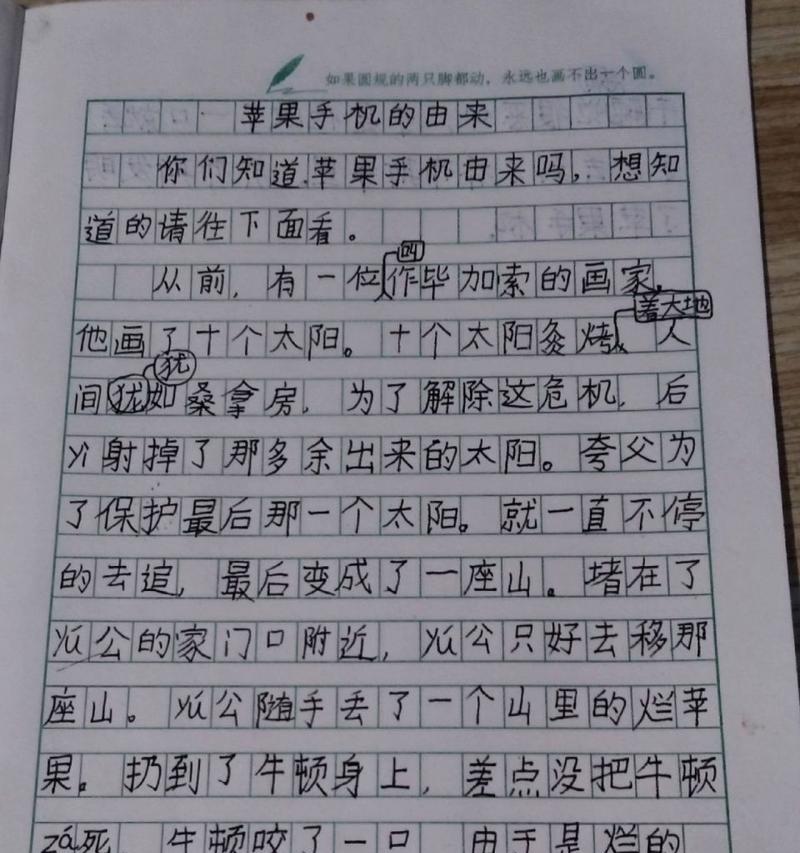 如果圆规的两只脚都动，永远也画不出一个圆。
苹果手机的由来
你们知道苹果手机由来吗，想知
道的请往下面看。
叫
从前，有一位作毕加索的画家，
着大地
他画了十个太阳。十个太阳灸烤 人
犹
间犹如桑拿房，为了解除这危机，后
yì射掉了那多余出来的太阳。夸父为
了保护最后那一个太阳。就一直不停
的去追，最后变成了一座山。堵在了
yú公的家门口附近，yú公只好去移那
座山。yú公随手丢了一个山里的烂苹
果。扔到了牛顿身上，差点没把牛顿
zá死 牛顿咬了一口 由于是烂的